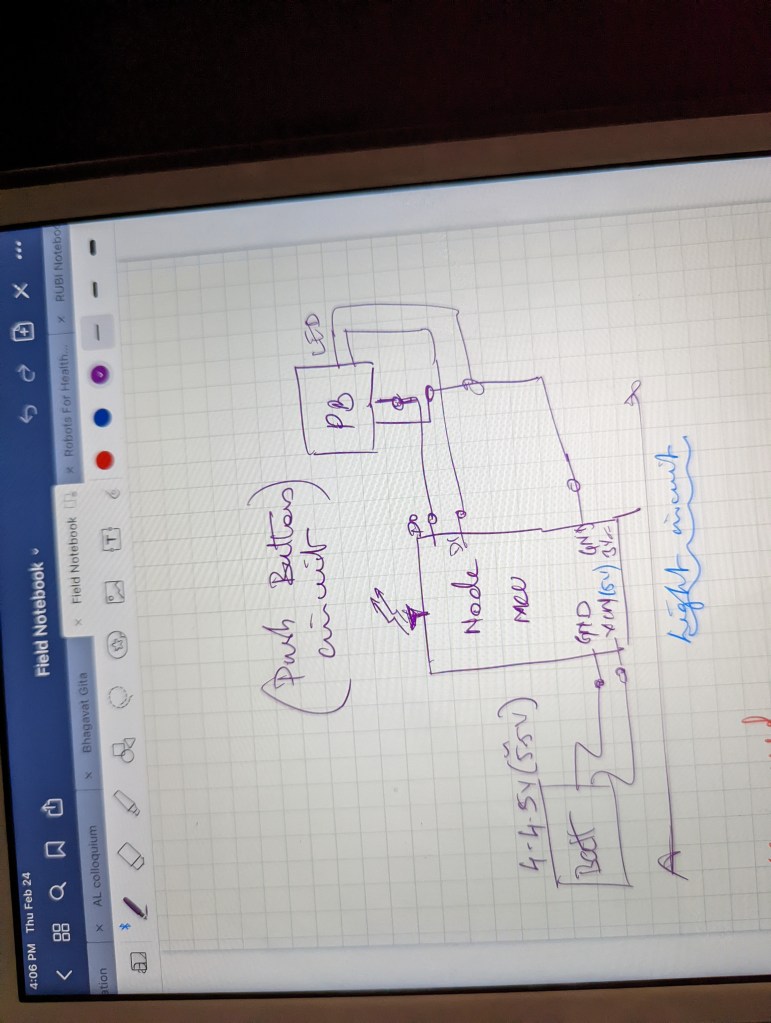 4:06 PM Thu Feb 24
Field Notebook
AL colloquium
Bhagavat Gita
Field Notebook
Robots For Health...
RUBI Notebo
ation
T
(Push Button)
circuit
LED
PB
D0
D1
Node
MCU
GND
3V
GND
VIN(5V)
4-4.5V(5.5V)
Batt
Light circuit